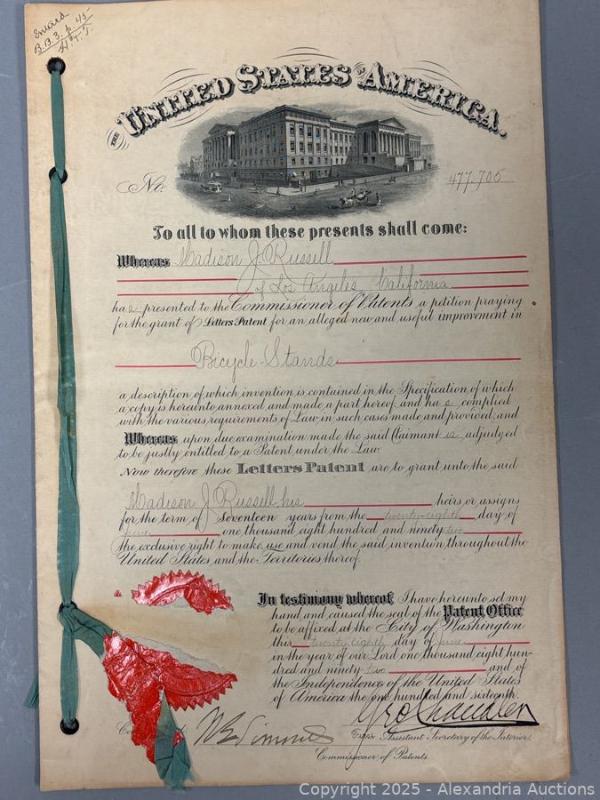 B.B. 3. p. 45
THE UNITED STATES OF AMERICA.
No. 477,705
To all to whom these presents shall come:
Whereas Madison J. Russell
of Los Angeles, California
has presented to the Commissioner of Patents a petition praying
for the grant of Letters Patent for an alleged new and useful improvement in
Bicycle-Stands
a description of which invention is contained in the Specification of which
a copy is hereunto annexed and made a part hereof, and has complied
with the various requirements of Law in such cases made and provided, and
Whereas upon due examination made the said Claimant is adjudged
to be justly entitled to a Patent under the Law.
Now therefore these Letters Patent are to grant unto the said
Madison J. Russell his heirs or assigns
for the term of Seventeen years from the twenty-eighth day of
June one thousand eight hundred and ninety two
the exclusive right to make, use and vend the said invention throughout the
United States and the Territories thereof.
In testimony whereof, I have hereunto set my
hand and caused the seal of the Patent Office
to be affixed at the City of Washington
this twenty eighth day of June
in the year of our Lord one thousand eight hun-
dred and ninety two and of
the Independence of the United States
of America the one hundred and sixteenth.
Geo Chandler
Assistant Secretary of the Interior.
Commissioner of Patents.
Copyright 2025 - Alexandria Auctions